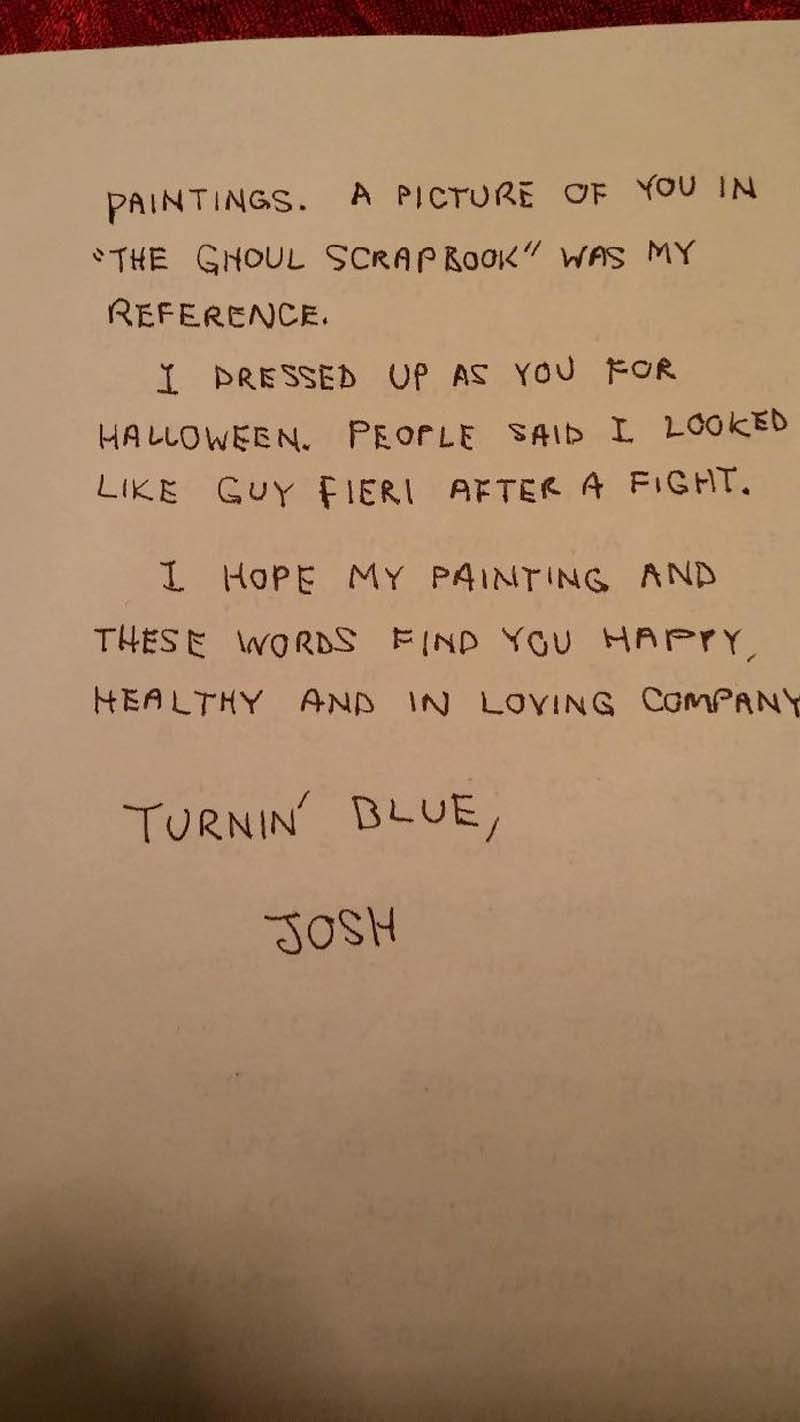 PAINTINGS. A PICTURE OF YOU IN
"THE GHOUL SCRAPBOOK" WAS MY
REFERENCE.
I DRESSED UP AS YOU FOR
HALLOWEEN. PEOPLE SAID I LOOKED
LIKE GUY FIERI AFTER A FIGHT.
I HOPE MY PAINTING AND
THESE WORDS FIND YOU HAPPY,
HEALTHY AND IN LOVING COMPANY
TURNIN' BLUE,
JOSH